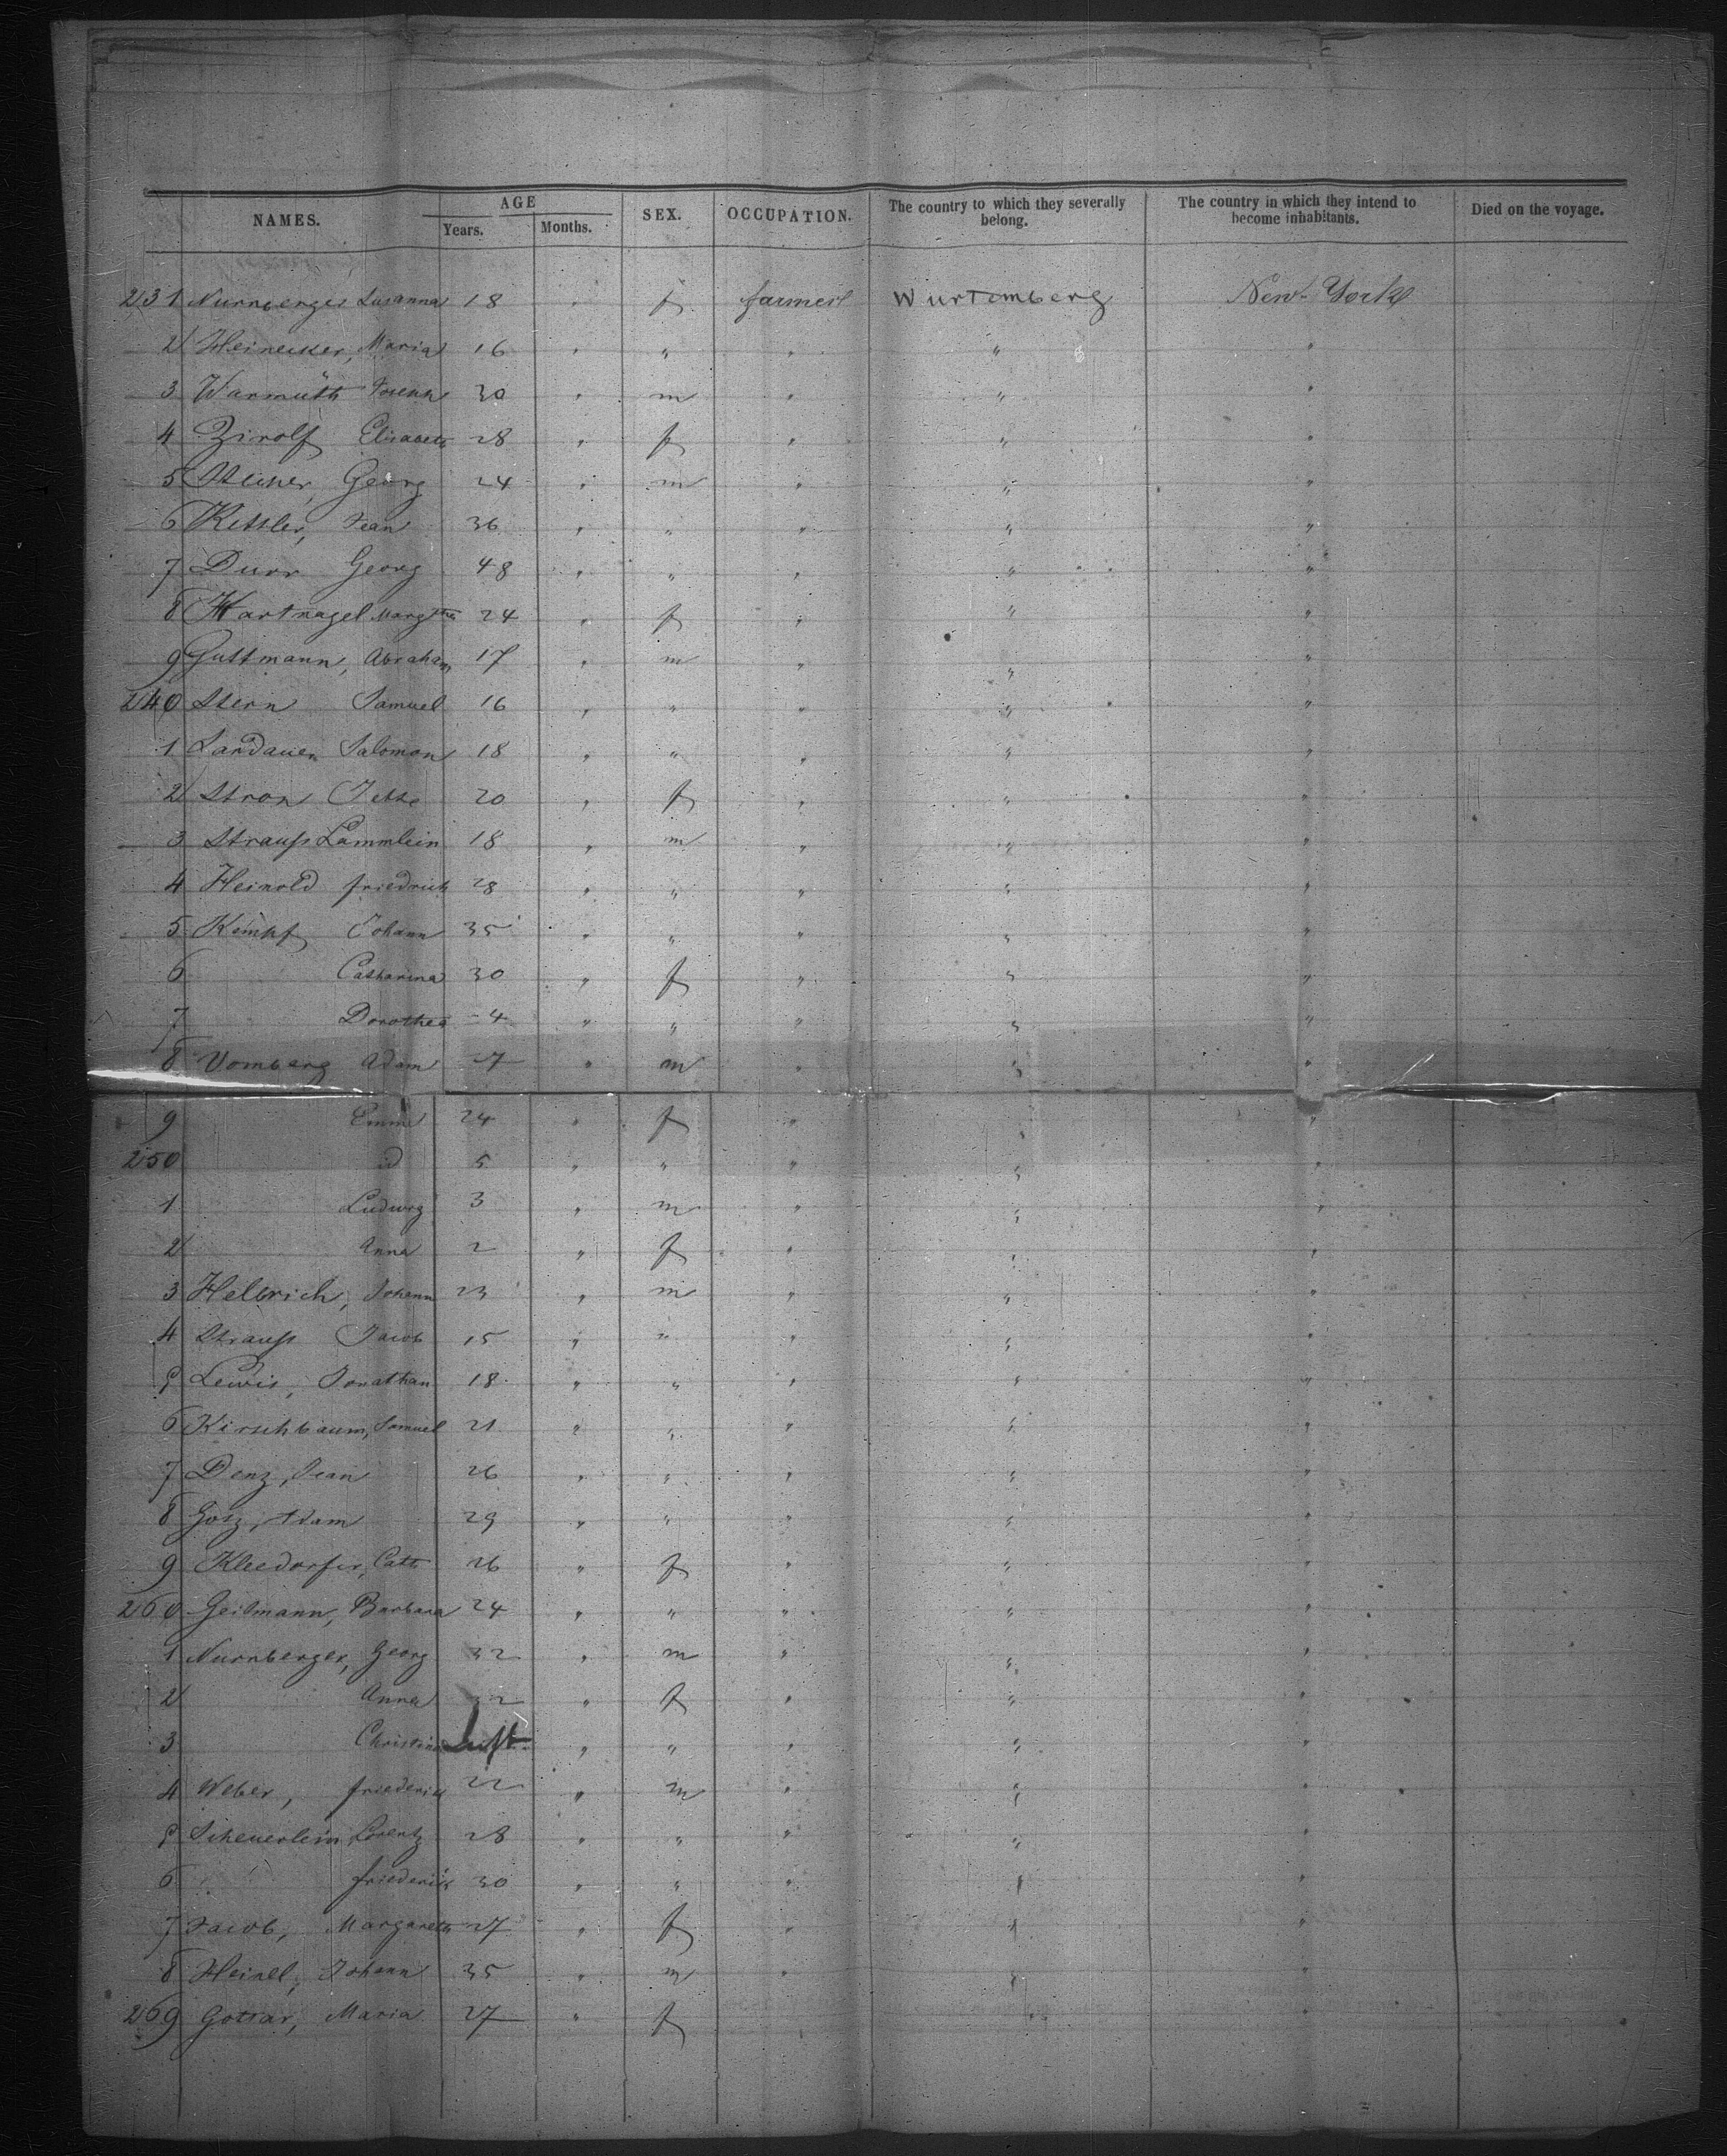 NAMES. AGE Years. Months. SEX. OCCUPATION. The country to which they severally belong. The country in which they intend to become inhabitants. Died on the voyage.
231 Nurnberger Susanna 18 " f farmer Wurtemberg New-York
2 Heinecker, Maria 16 " " " " "
3 Warmuth Joseph 30 " m " " "
4 Zirolf Elisabeth 28 " f " " "
5 Georg 24 " m " " "
6 Kettler, Jean 36 " " " " "
7 Durr Georg 48 " " " " "
8 Hartnagel Margtha 24 " f " " "
9 Guttmann, Abraham 17 " m " " "
240 Stern Samuel 16 " " " " "
1 Landauer Salomon 18 " " " " "
2 Stron Jette 20 " f " " "
3 Strauß Lammlein 18 " m " " "
4 Heinold friedrich 28 " " " " "
5 Kempf Johann 35 " " " " "
6 Catharina 30 " f " " "
7 Dorothea 4 " " " " "
8 Vomberg Adam 27 " m " " "
9 Emma 24 " f " " "
250 id 5 " " " " "
1 Ludwig 3 " m " " "
2 Anna 2 " f " " "
3 Helbrich, Johann 23 " m " " "
4 Strauß Jacob 15 " " " " "
5 Lewis, Jonathan 18 " " " " "
6 Kirschbaum, Samuel 21 " " " " "
7 Denz, Jean 26 " " " " "
8 Götz, Adam 29 " " " " "
9 Kleedorfer, Cath 26 " f " " "
260 Geismann, Barbara 24 " " " " "
1 Nurnberger, Georg 32 " m " " "
2 Anna 32 " f " " "
3 Christina " " " " "
4 Weber, friederich 22 " m " " "
5 Scheuerlein Lorentz 28 " " " " "
6 friederich 30 " " " " "
7 Jacob, Margareth 27 " f " " "
8 Heinel, Johann 35 " m " " "
269 Gottar, Maria 27 " f " "